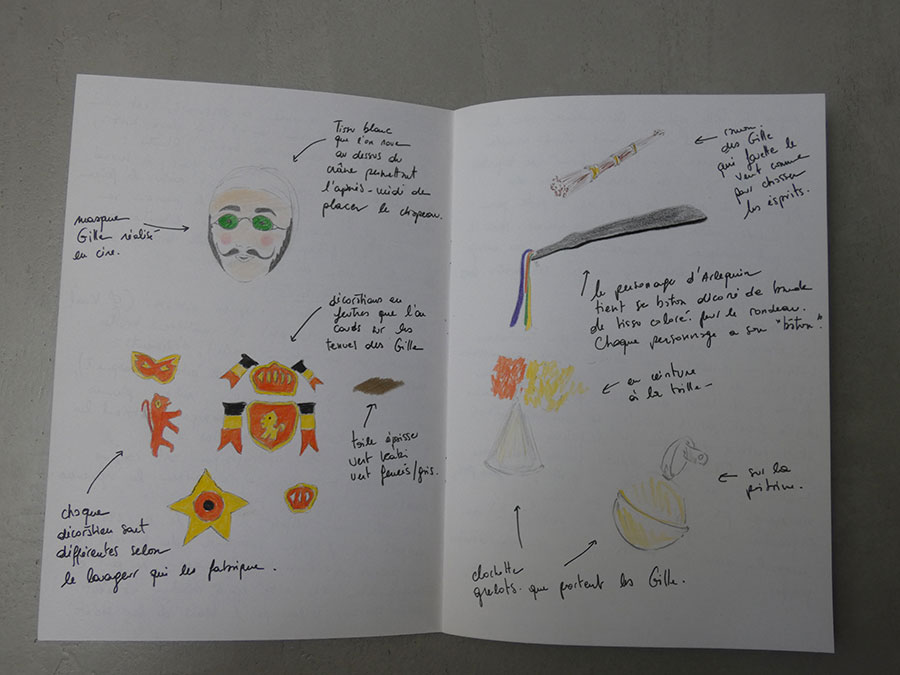 Tissu blanc
que l'on noue
au dessus du
crâne permettant
l'après-midi de
placer le chapeau.
masque
Gille réalisé
en cire.
décorations en
feutres que l'on
couds sur les
tenues des Gille
toile épaisse
vert kaki
vert foncés/gris.
chaque
décoration sont
différentes selon
le louageur qui les fabrique.
des Gille
qui fouette le
vent comme
pour chasser
les esprits.
le personage d'Arlequin
tient se bâton décoré de bande
de tissu coloré. pour le rondeau.
Chaque personnage a son "bâton".
en ceinture
à la taille-
sur la
poitrine.
clochette
grelots. que portent les Gille.